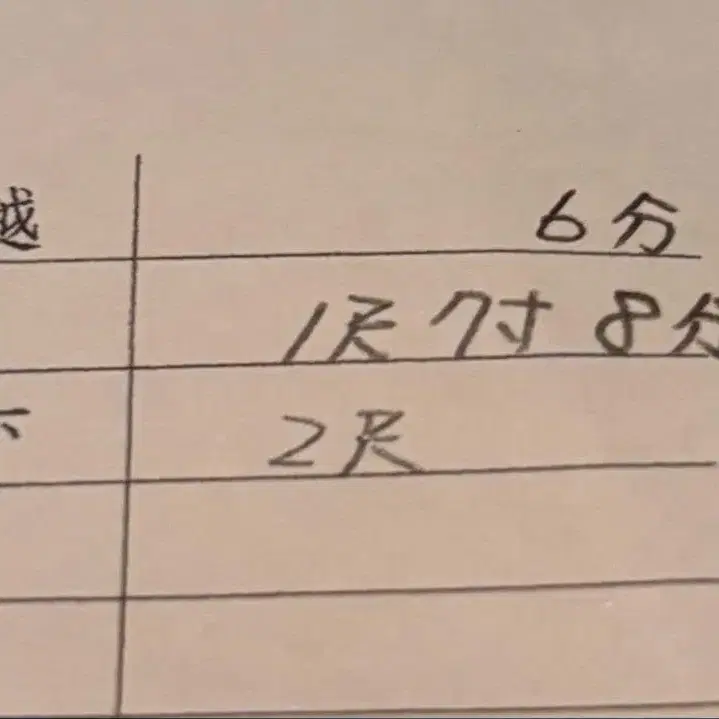 越 6分
1尺 7寸 8分
2尺